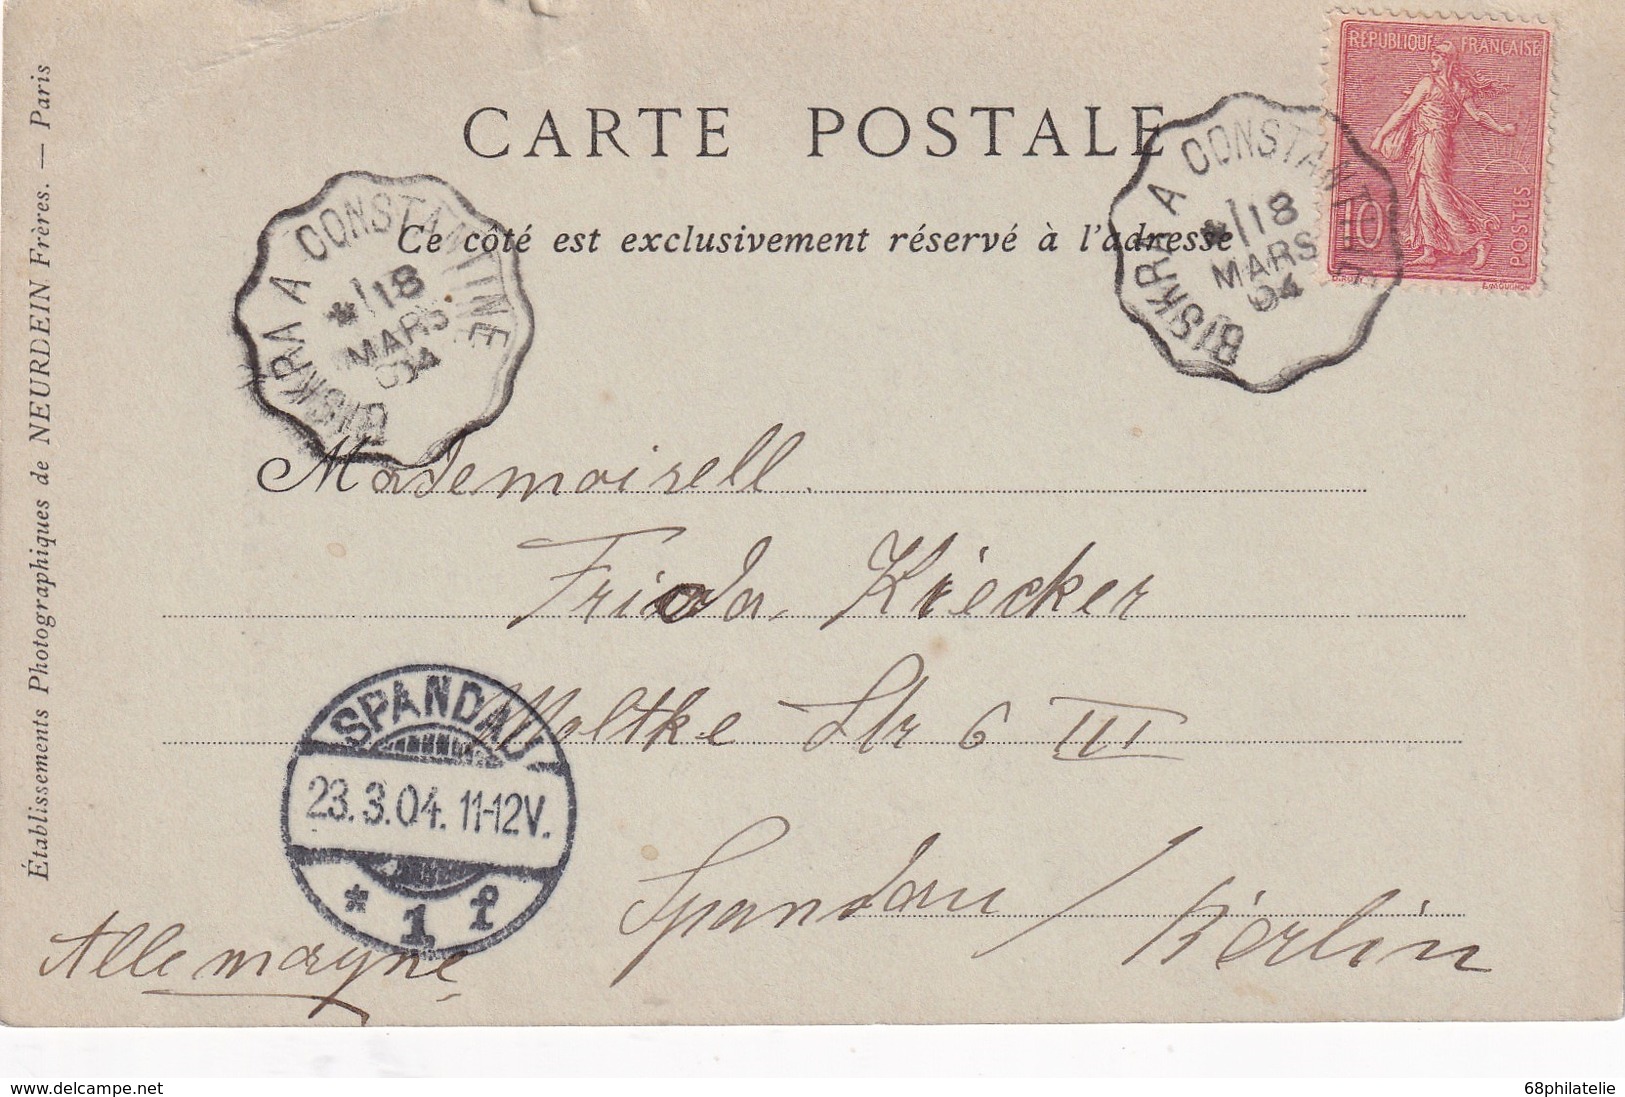 CARTE POSTALE
Ce côté est exclusivement réservé à l'adresse
RÉPUBLIQUE FRANÇAISE
10
POSTES
BISKRA A CONSTANTINE
18
MARS
04
BISKRA A CONSTANTINE
18
MARS
04
Établissements Photographiques de NEURDEIN Frères. — Paris
Mademoisell
Frieda Kriecker
Moltke Str 6 III
Spandau / Berlin
Allemagne
SPANDAU
23.3.04. 11-12V.
* 1 f
www.delcampe.net
68philatelie